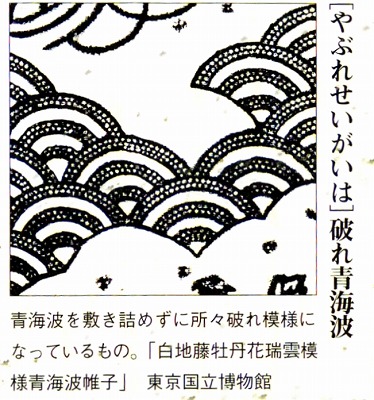 [やぶれせいがいは]破れ青海波
青海波を敷き詰めずに所々破れ模様に
なっているもの。「白地藤牡丹花瑞雲模
様青海波帷子」 東京国立博物館